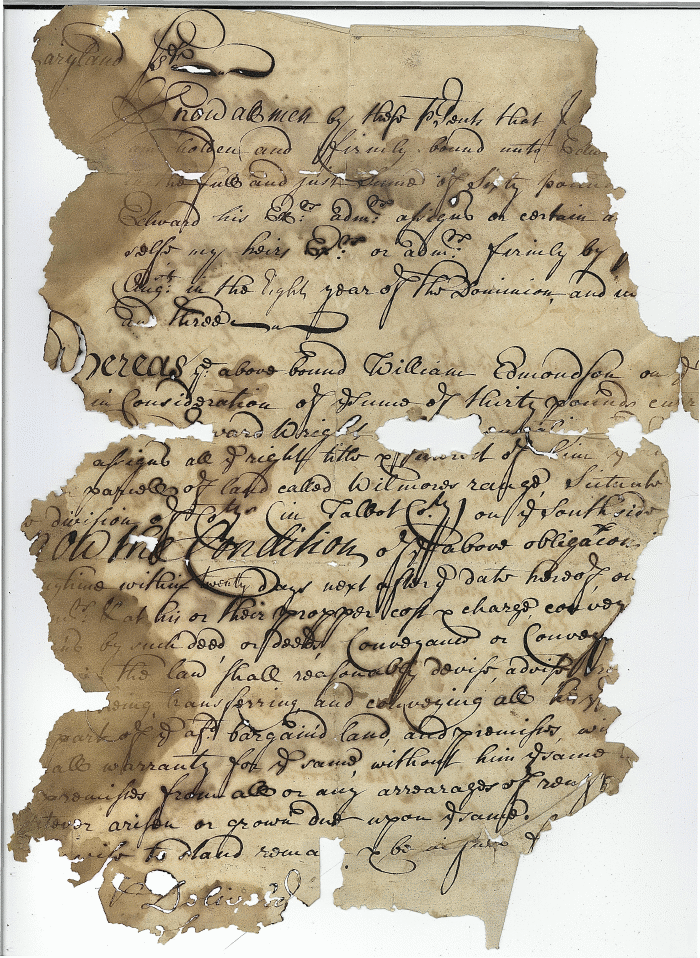 aryland
Know all men by these Prsents that I
holden and firmly bound unto Edw
the full and just Sume of Sixty pound
Edward his Exrs: admrs: assigns or certain a
selfe my heirs Exrs: or admrs: firmly by
Augst: in the Eighth year of the Dominion, and in
and three
Whereas ye: above bound William Edmondson on ye
in Consideration of ye sume of thirty pounds curr
ward Wright
assigns all ye right title & interest of him
parcell of land called Wilmores range, Scituate
division of in Talbot Coty on ye South side
Now the Condition of ye above obligacon
anytime within twenty Days next after ye date hereof, on
at his or their propper cost & charge, convey
by such deed or deeds, Conveyance or Convey
the law shall reasonably devise, advise
transferring and conveying all his
part of ye afsd: bargaind land, and premises, wi
all warranty for ye same, without him ye same
premises from all or any arrearages of ren
tever arisen or grown due upon ye same.
wise to stand rema & be in
Deliverd